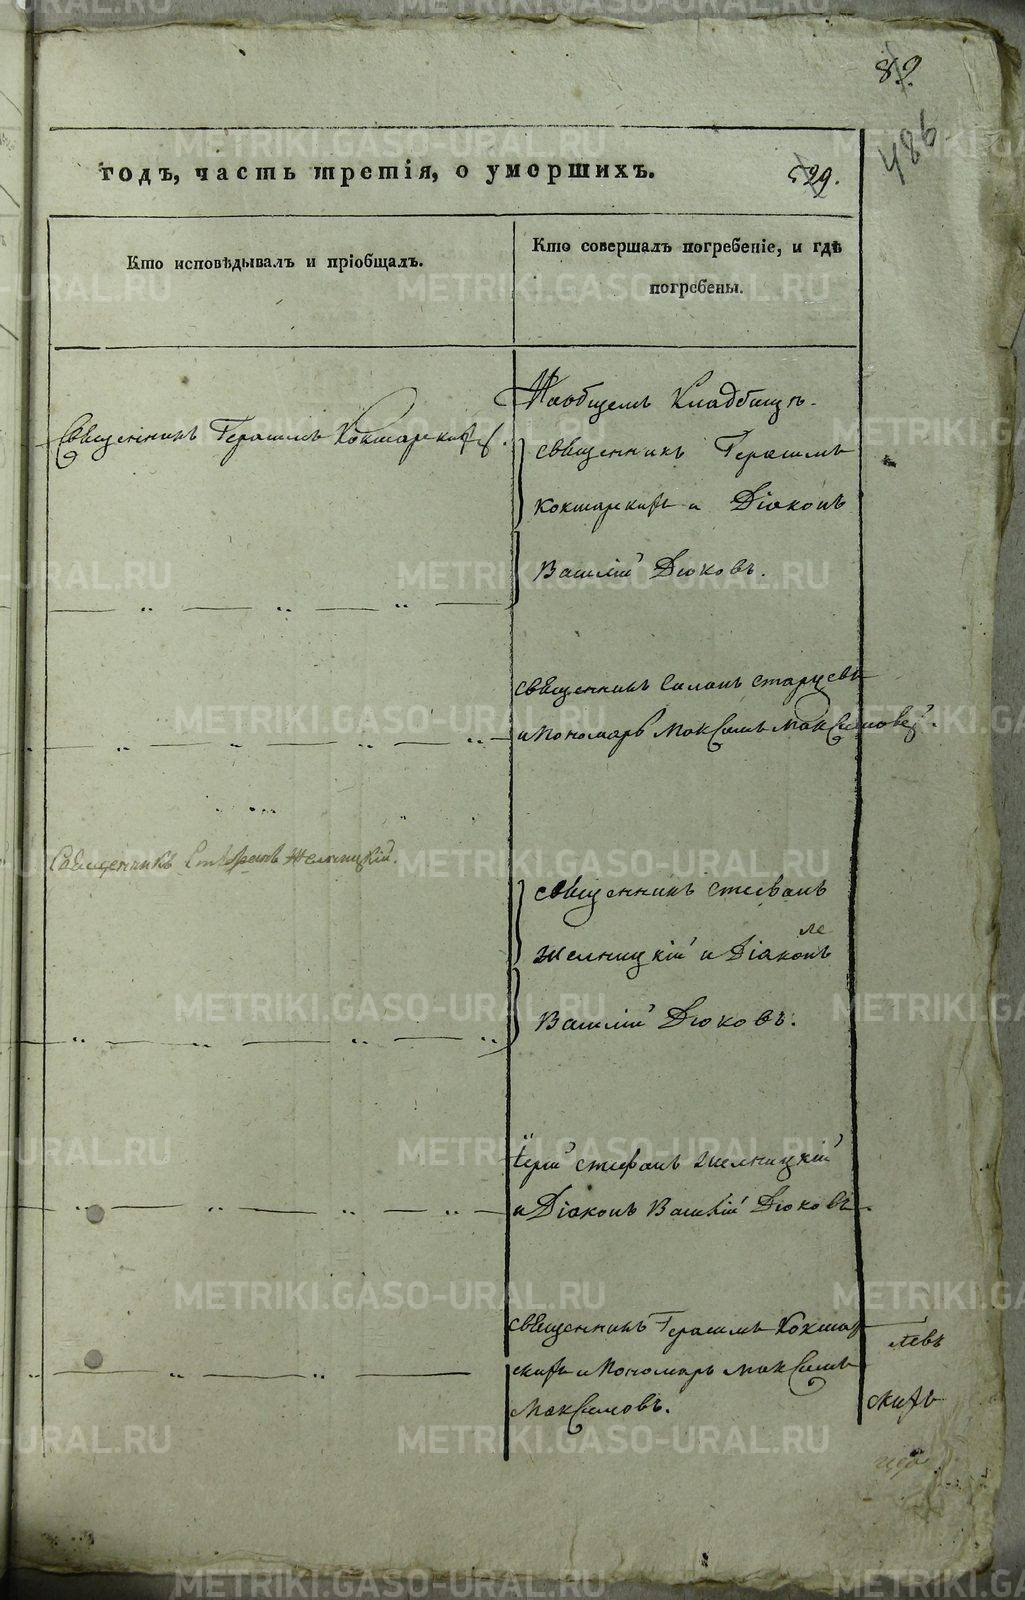 486
29.
годъ, часть третія, о умершихъ.
Кто исповѣдывалъ и пріобщалъ.
Кто совершалъ погребеніе, и гдѣ
погребены.
Наобщемъ Кладбищѣ.
Священникъ Герасимъ
священникъ Герасимъ
и Діаконъ
Василій Дюковъ.
священникъ Симонъ Старцевъ
и Пономарь Максимъ Максимовъ.
Священникъ Стефанъ Желницкій.
священникъ Стефанъ
Желницкій и Діаконъ
Василій Дюковъ.
Іерей Стефанъ Желницкій
и Діаконъ Василій Дюковъ.
священникъ Герасимъ
и Пономарь Максимъ
Максимовъ.
METRIKI.GASO-URAL.RU